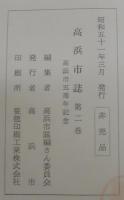 昭和五十一年三月 発行
非売品
高浜市誌 第二巻
高浜市五周年記念
編集者 高浜市誌編さん委員会
発行者 高浜市
印刷所 亜徳印刷工業株式会社